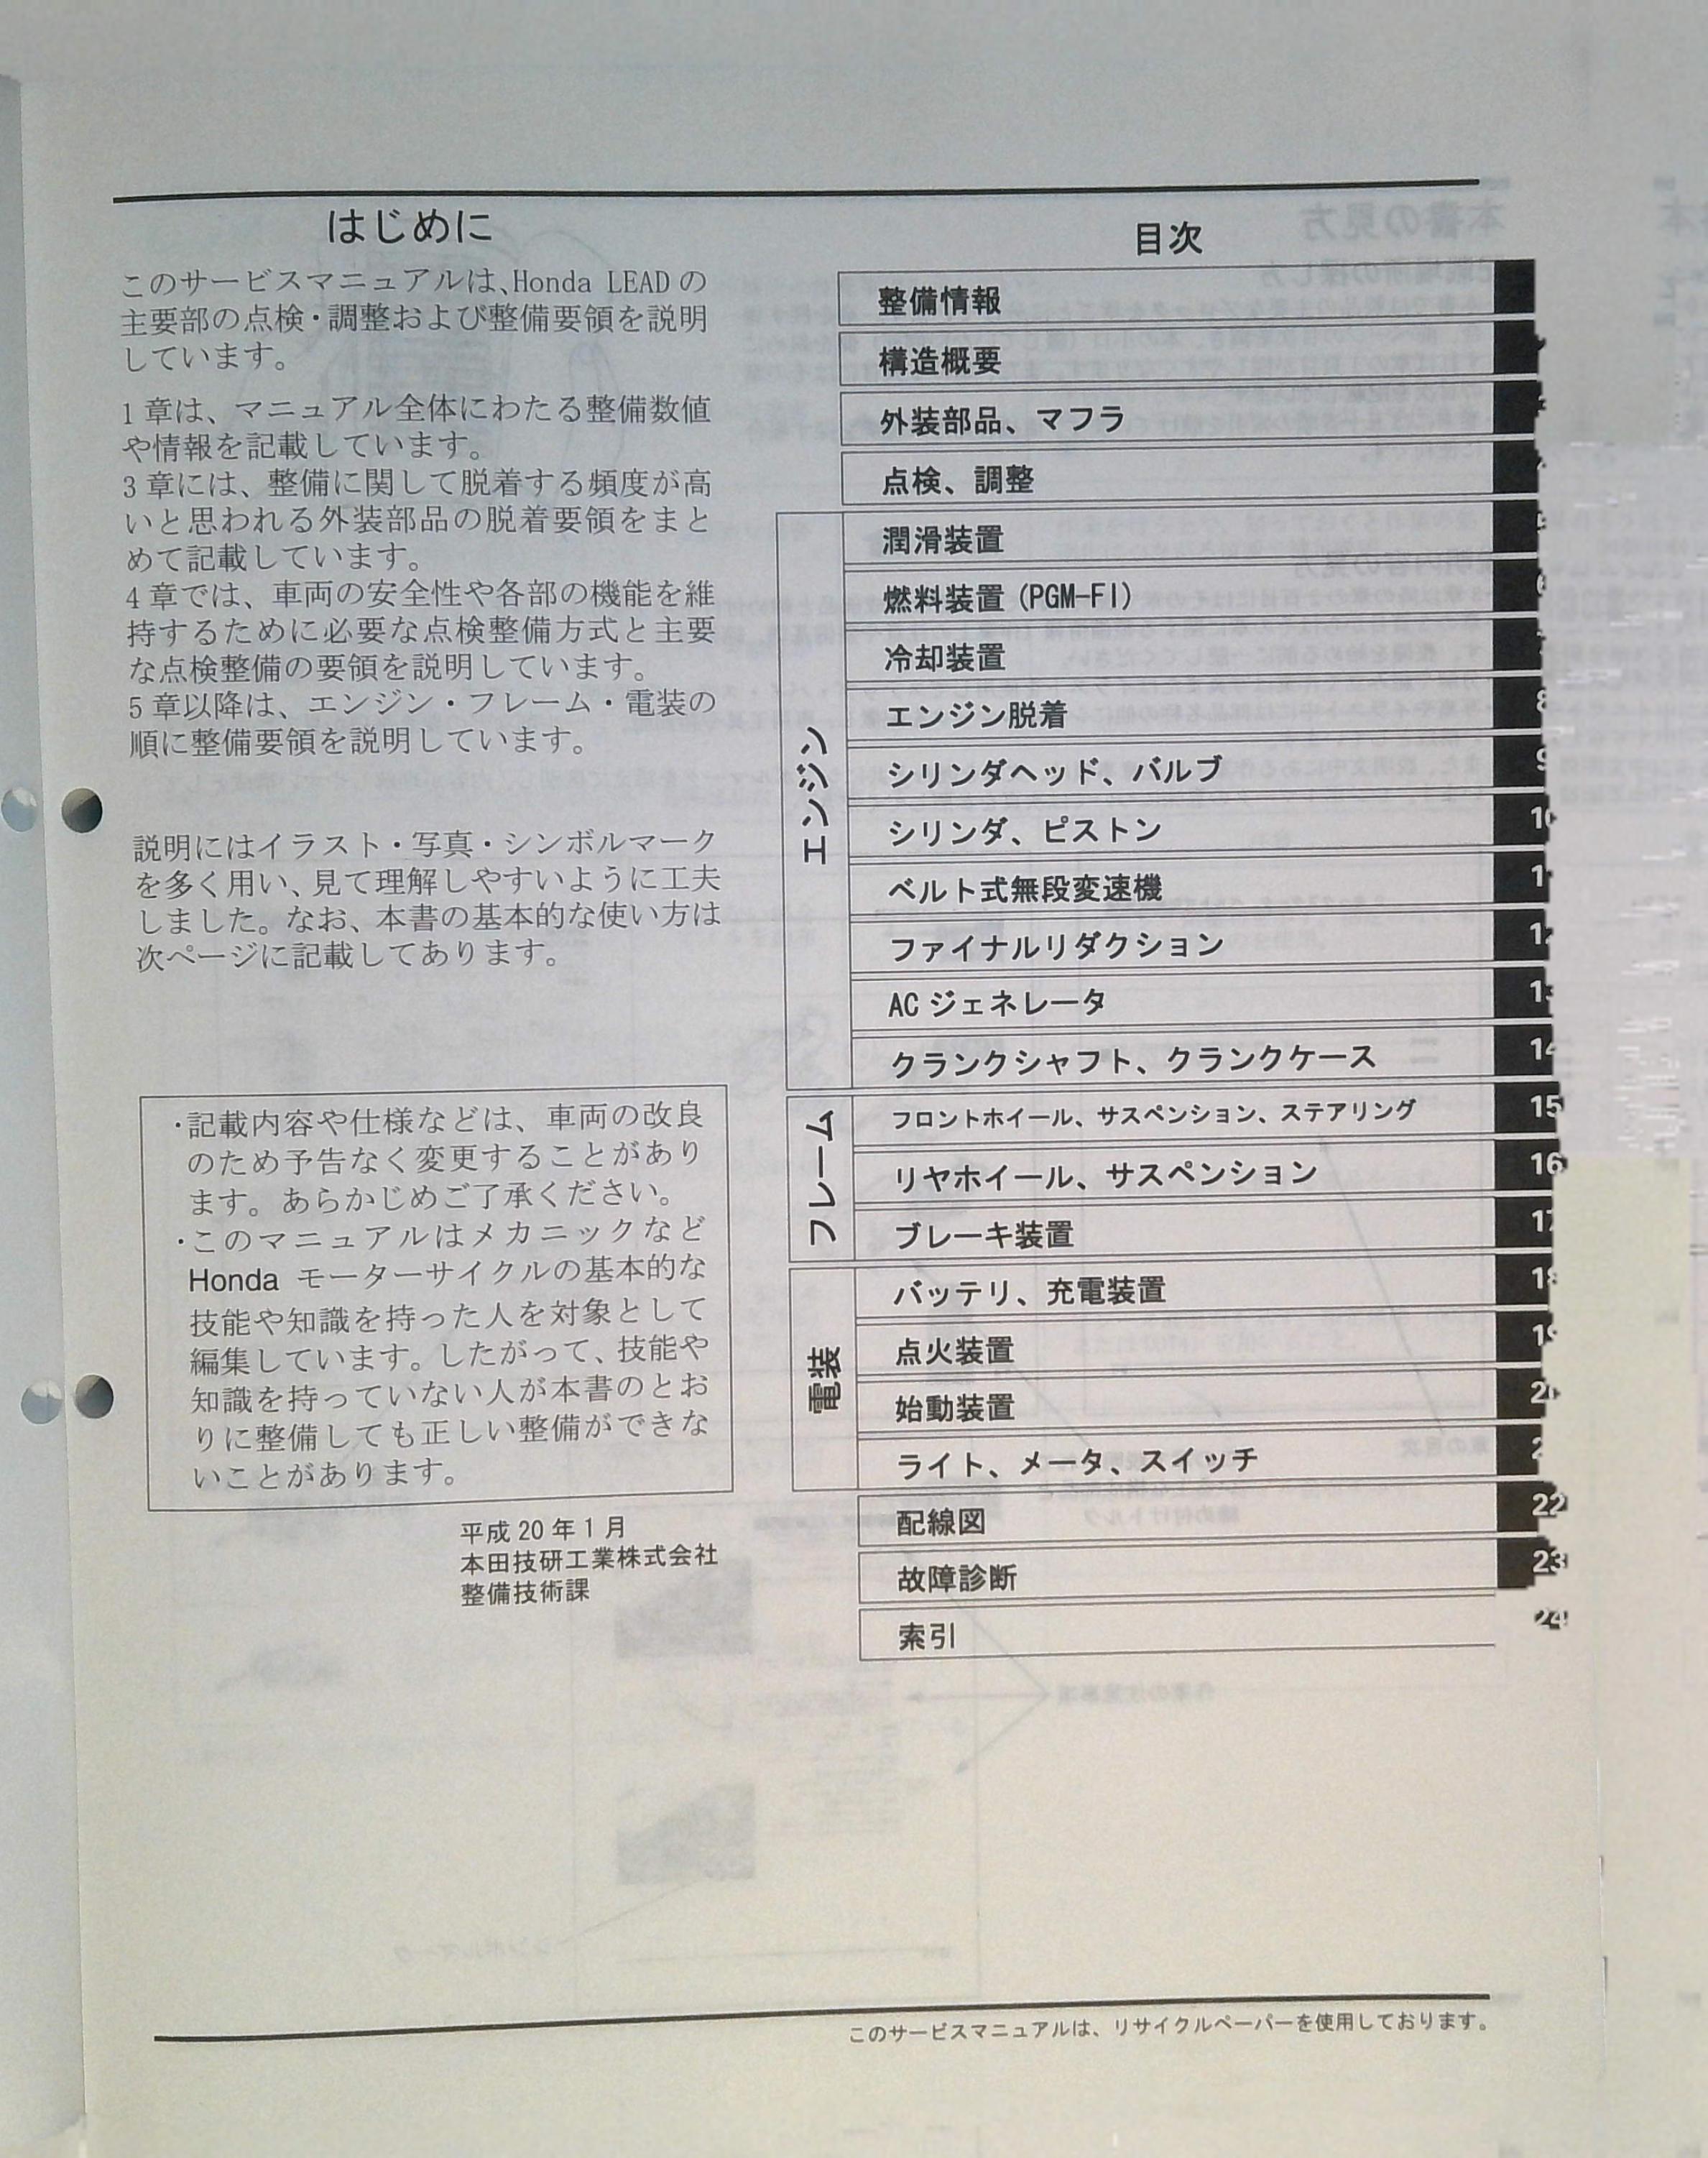 はじめに
このサービスマニュアルは、Honda LEAD の
主要部の点検・調整および整備要領を説明
しています。
1 章は、マニュアル全体にわたる整備数値
や情報を記載しています。
3 章には、整備に関して脱着する頻度が高
いと思われる外装部品の脱着要領をまと
めて記載しています。
4 章では、車両の安全性や各部の機能を維
持するために必要な点検整備方式と主要
な点検整備の要領を説明しています。
5 章以降は、エンジン・フレーム・電装の
順に整備要領を説明しています。
説明にはイラスト・写真・シンボルマーク
を多く用い、見て理解しやすいように工夫
しました。なお、本書の基本的な使い方は
次ページに記載してあります。
・記載内容や仕様などは、車両の改良
のため予告なく変更することがあり
ます。あらかじめご了承ください。
・このマニュアルはメカニックなど
Honda モーターサイクルの基本的な
技能や知識を持った人を対象として
編集しています。したがって、技能や
知識を持っていない人が本書のとお
りに整備しても正しい整備ができな
いことがあります。
平成 20 年 1 月
本田技研工業株式会社
整備技術課
目次
整備情報
構造概要
外装部品、マフラ
点検、調整
エンジン
潤滑装置
燃料装置 (PGM-FI)
冷却装置
エンジン脱着 8
シリンダヘッド、バルブ 9
シリンダ、ピストン 10
ベルト式無段変速機
ファイナルリダクション
AC ジェネレータ
クランクシャフト、クランクケース 14
フレーム
フロントホイール、サスペンション、ステアリング 15
リヤホイール、サスペンション 16
ブレーキ装置 17
電装
バッテリ、充電装置 18
点火装置 19
始動装置 20
ライト、メータ、スイッチ
配線図 22
故障診断 23
索引 24
このサービスマニュアルは、リサイクルペーパーを使用しております。